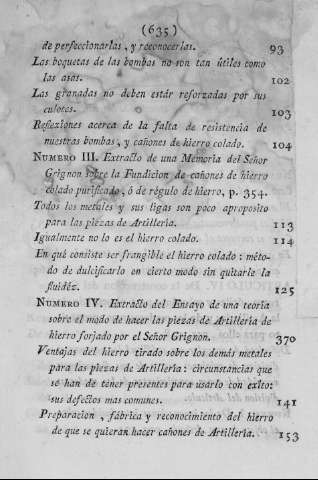 (635)
de perfeccionarlas, y reconocerlas. 93
Las boquetas de las bombas no son tan útiles como
las asas. 102
Las granadas no deben estár reforzadas por sus
culotes. 103
Reflexiones acerca de la falta de resistencia de
nuestras bombas, y cañones de hierro colado. 104
NUMERO III. Extracto de una Memoria del Señor
Grignon sobre la Fundicion de cañones de hierro
colado purificado, ó de régulo de hierro, p. 354.
Todos los metales y sus ligas son poco aproposito
para las piezas de Artillería. 113
Igualmente no lo es el hierro colado. 114
En qué consiste ser frangible el hierro colado: méto-
do de dulcificarlo en cierto modo sin quitarle la
fluidéz. 125
NUMERO IV. Extracto del Ensayo de una teoría
sobre el modo de hacer las piezas de Artillería de
hierro forjado por el Señor Grignon. 370
Ventajas del hierro tirado sobre los demás metales
para las piezas de Artillería: circunstancias que
se han de tener presentes para usarlo con exîto:
sus defectos mas comunes. 141
Preparacion, fábrica y reconocimiento del hierro
de que se quieran hacer cañones de Artillería. 153